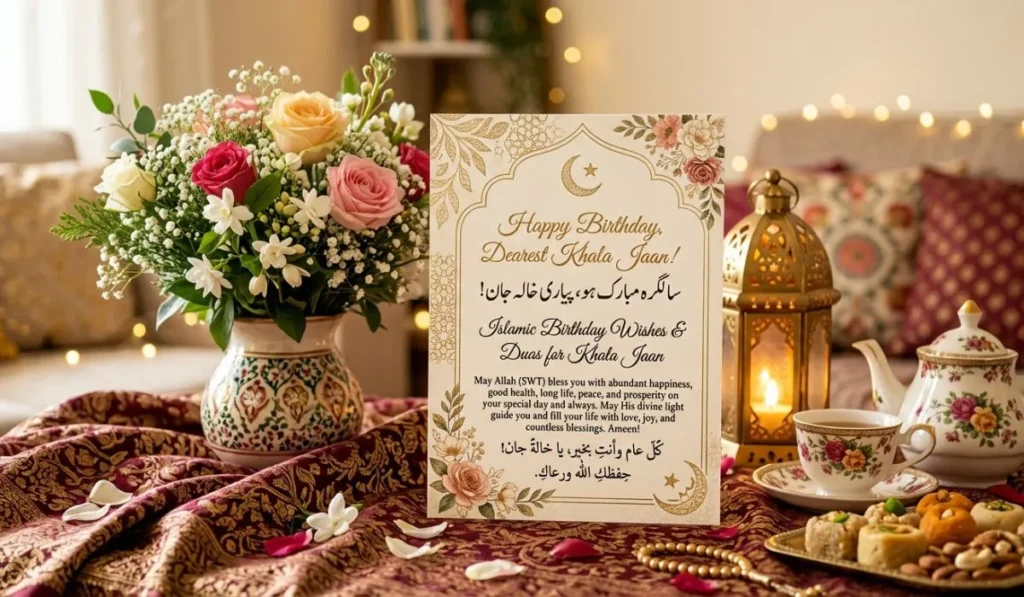 Happy Birthday,
Dearest Khala Jaan!
سالگرہ مبارک ہو، پیاری خالہ جان!
Islamic Birthday Wishes &
Duas for Khala Jaan
May Allah (SWT) bless you with abundant happiness,
good health, long life, peace, and prosperity on
your special day and always. May His divine light
guide you and fill your life with love, joy, and
countless blessings. Ameen!
كلّ عام وأنتِ بخير، يا خالةً جان!
حِفظكِ الله ورعاكِ.